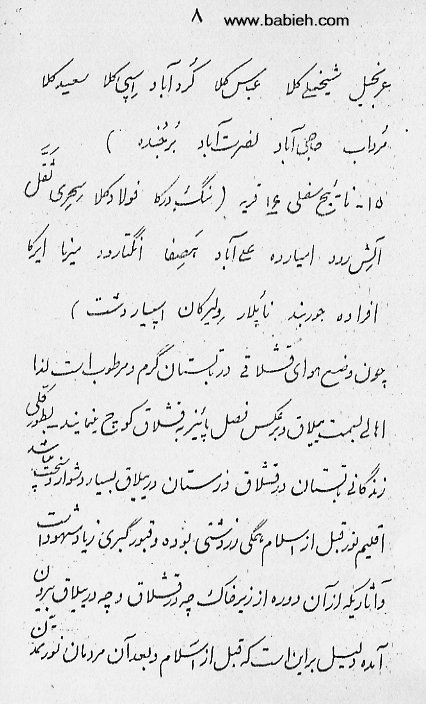 ۸ www.babieh.com
شیخعلی کلا عباس کلا کرد آباد اسپی کلا سعید کلا
مرداب حاجی آباد نصرت آباد )
۱۵- ناتیج سفلی ۱۶ قریه ( سنگ درکا فولاد کلا
رود علی آباد انگتارود میرنا
افراده جوربند ناپلار ولیرکان اسپیار دشت )
چون وضع هوای قشلاقی در تابستان گرم و مرطوب است لذا
اهالی بسمت ییلاق و برعکس فصل پائیز به قشلاق کوچ مینمایند بطور کلی
زندگانی تابستان در قشلاق و زمستان در ییلاق بسیار دشوار و سخت میباشد
اقلیم نور قبل از اسلام همگی زردشتی بوده و قبور گبری زیاد مشهود است
و آثاریکه از آن دوره از زیر خاک چه در قشلاق و چه در ییلاق بیرون
آمده دلیل بر این است که قبل از اسلام و بعد آن مردمان نور تمدن